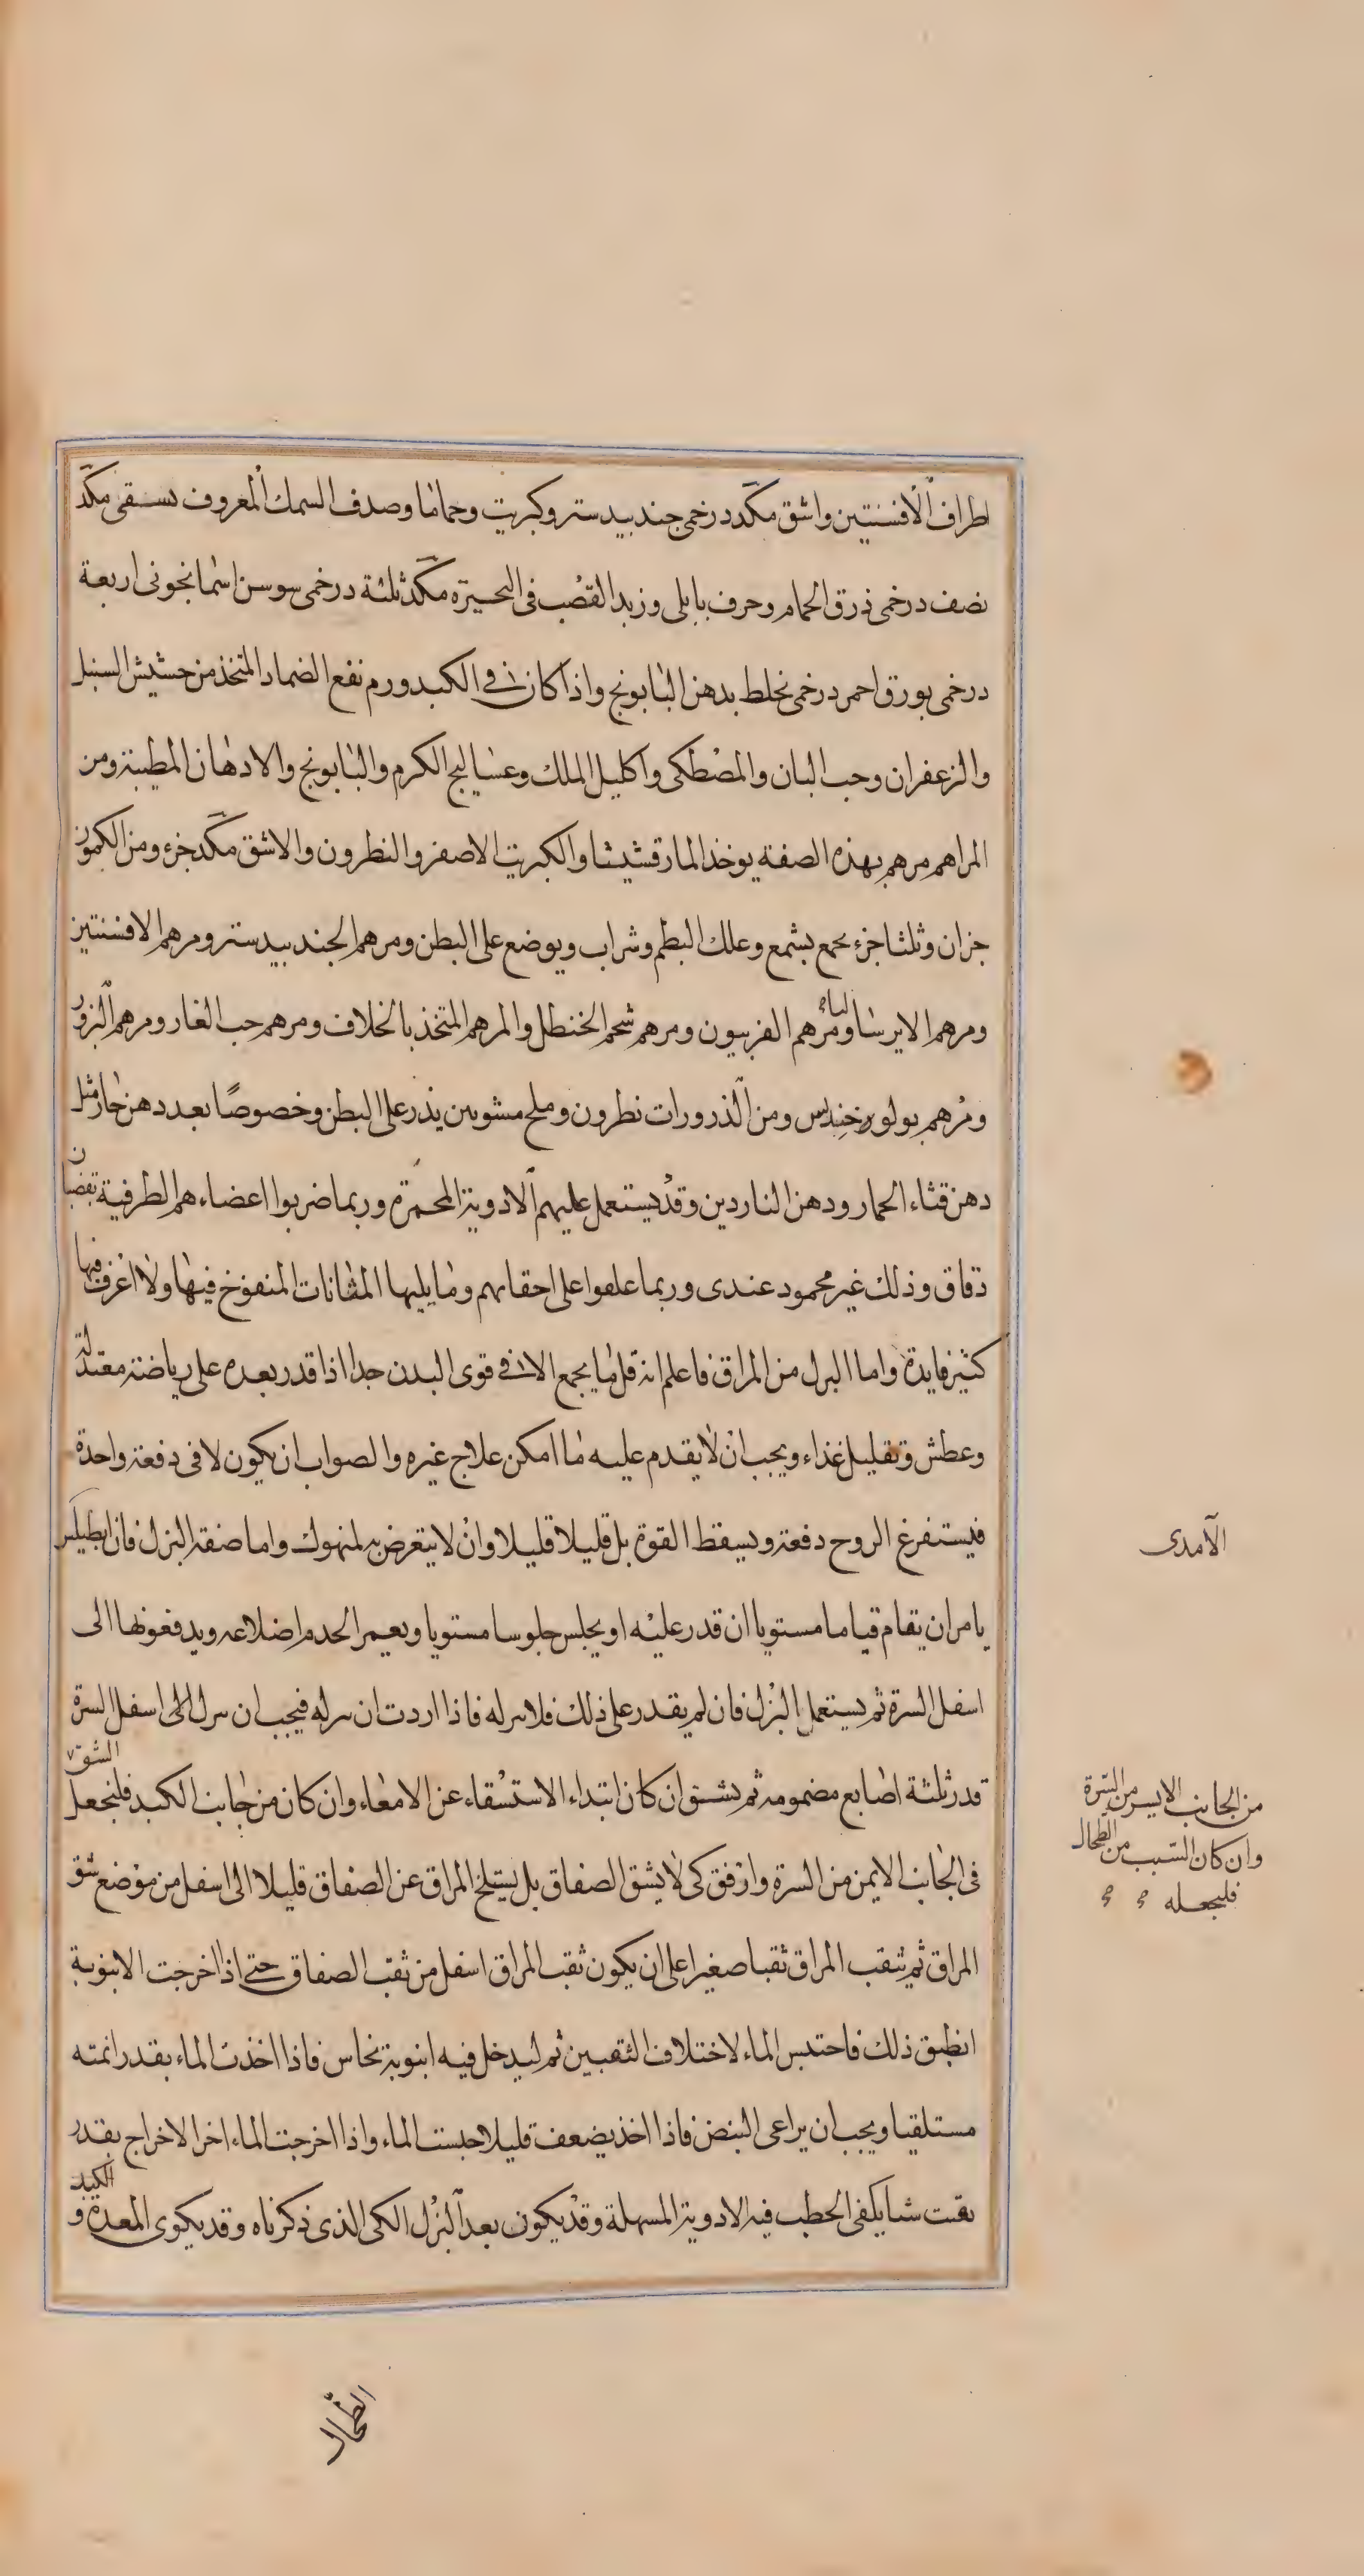 اطراف الافسنتين واشق مكد درخمى جندبيدستر وكبريت وحماما وصدف السمك المعروف بسقى مكد
نصف درخمى ذرق الحمام وحرف بابلى وزبد القصب فى البحيرة مكد ثلثة درخمى سوسن اسمانجونى اربعة
درخمى بورق احمر درخمى يخلط بدهن البابونج واذا كان فى الكبد ورم نفع الضماد المتخذ من حشيش السنبل
والزعفران وحب البان والمصطكى واكليل الملك وعساليج الكرم والبابونج والادهان المطيبة ومن
المراهم مرهم بهذه الصفة يوخذ المارقشيثا والكبريت الاصفر والنطرون والاشق مكد جزء ومن الكمون
جزان وثلثا جزء يجمع بشمع وعلك البطم وشراب ويوضع على البطن ومرهم الجندبيدستر ومرهم الافسنتين
ومرهم الايرسا ومرهم الفربيون ومرهم شحم الحنظل والمرهم المتخذ بالخلاف ومرهم حب الغار ومرهم البزور
ومرهم بولور خندس ومن الذرورات نطرون وملح مشويين يذر على البطن وخصوصا بعد دهن حار مثل
دهن قثاء الحمار ودهن الناردين وقد يستعمل عليهم الادوية المحمرة وربما ضربوا اعضاءهم الطرفية بقضبان
دقاق وذلك غير محمود عندى وربما علقوا على احقابهم وما يليها المثانات المنفوخ فيها ولا اعرف فيها
كثير فايدة واما البزل من المراق فاعلم انه قل ما ينجع الا فى قوى البدن جدا اذا قدر بعده على رياضة معتدلة
وعطش وتقليل غذاء ويجب ان لا يقدم عليه ما امكن علاج غيره والصواب ان يكون لا فى دفعة واحدة
فيستفرغ الروح دفعة ويسقط القوة بل قليلا قليلا وان لا يتعرض به لمنهوك واما صفة البزل فان ابطيلس
يامر ان يقام قياما مستويا ان قدر عليه او يجلس جلوسا مستويا ويغمر الخدم اضلاعه ويدفعونها الى
اسفل السرة ثم يستعمل البزل فان لم يقدر على ذلك فلا يبزله فاذا اردت ان تبزله فيجب ان تبزل الى اسفل السرة
قدر ثلثة اصابع مضمومه ثم يشق ان كان ابتداء الاستسقاء عن الامعاء وان كان من جانب الكبد فليجعل الشق
فى الجانب الايمن من السرة وارفق كى لا يشق الصفاق بل يسلخ المراق عن الصفاق قليلا الى اسفل من موضع شق
المراق ثم تثقب المراق ثقبا صغيرا على ان يكون ثقب المراق اسفل من ثقب الصفاق حتى اذا اخرجت الانبوبة
انطبق ذلك فاحتبس الماء لاختلاف الثقبين ثم ليدخل فيه انبوبة نحاس فاذا اخذت الماء بقدر انمته
مستلقيا ويجب ان يراعى النبض فاذا اخذ يضعف قليلا حبست الماء واذا اخرجت الماء اخر الاخراج بقدر
بقيت شيا يكفى الخطب فيه الادوية المسهلة وقد يكون بعد البزل الكى الذى ذكرناه وقد يكوى المعدة والكبد
الآمدى
من الجانب الايسر من السرة
وان كان السبب من الطحال
فليجعله
الطحال